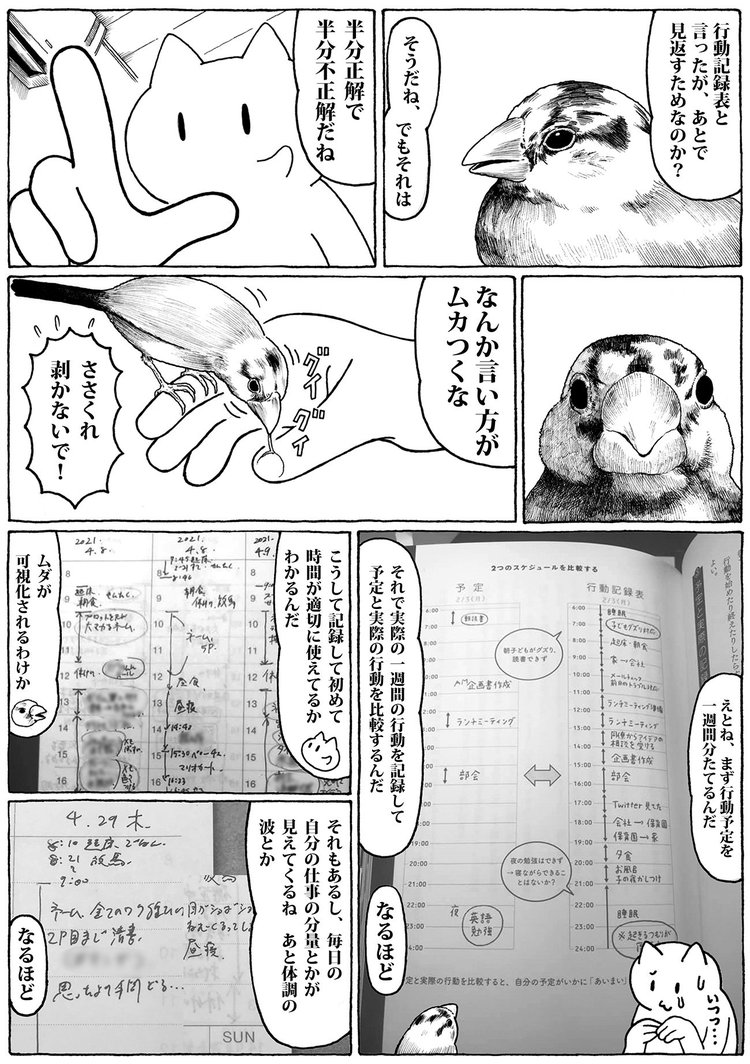 行動記録表と
言ったが、あとで
見返すためなのか？
そうだね、
でもそれは
半分正解で
半分不正解だね
なんか言い方が
ムカつくな
グイ
グイ
ささくれ
剥かないで！
えとね、まず行動予定を
一週間分たてるんだ
それで実際の一週間の行動を記録して
予定と実際の行動を比較するんだ
2つのスケジュールを比較する
予定
2/3(月)
6:00
7:00
8:00
9:00
10:00
11:00
12:00
13:00
14:00
15:00
16:00
18:00
19:00
20:00
21:00
22:00
23:00
24:00
朝子どもがグズリ、
読書できず
企画書作成
ランチミーティング
部会
夜の勉強はできず
→寝ながらできるこ
とはないか？
夜
英語
勉強
行動記録表
2/3(月)
6:00
7:00
8:00
9:00
10:00
11:00
12:00
13:00
14:00
15:00
16:00
18:00
19:00
20:00
21:00
22:00
23:00
24:00
睡眠
起床・朝食
家→会社
ランチミーティング
企画書作成
部会
Twitter見てた
会社→保育園
保育園→家
夕食
お風呂
子の寝かしつけ
睡眠
定と実際の行動を比較すると、自分の予定がいかに「あいまい」
なるほど
いっつ…
こうして記録して初めて
時間が適切に使えてるか
わかるんだ
ムダが
可視化されるわけか
2021.
4.8.
2021
4.8
2021
4.9
8
9
10
11
12
13
14
15
16
朝食
昼食
昼寝
マリオカート
それもあるし、毎日の
自分の仕事の分量とかが
見えてくるね　あと体調の
波とか
4.29 木
8:10 起床
8:21
9:00
昼寝
SUN
なるほど